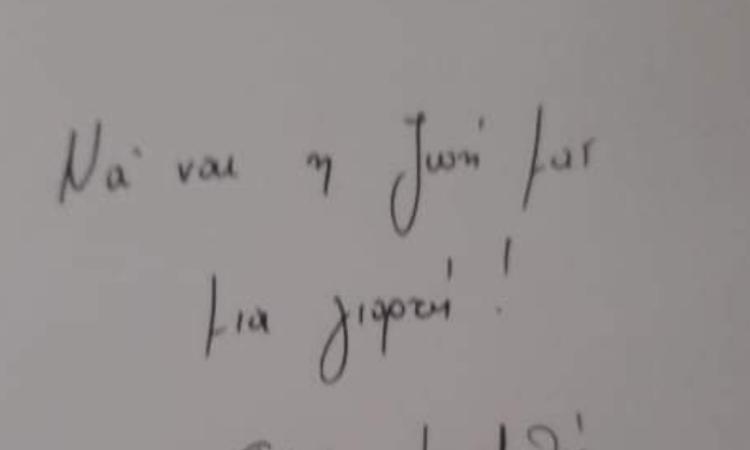 Να' ναι η ζωή μας
μια γιορτή!